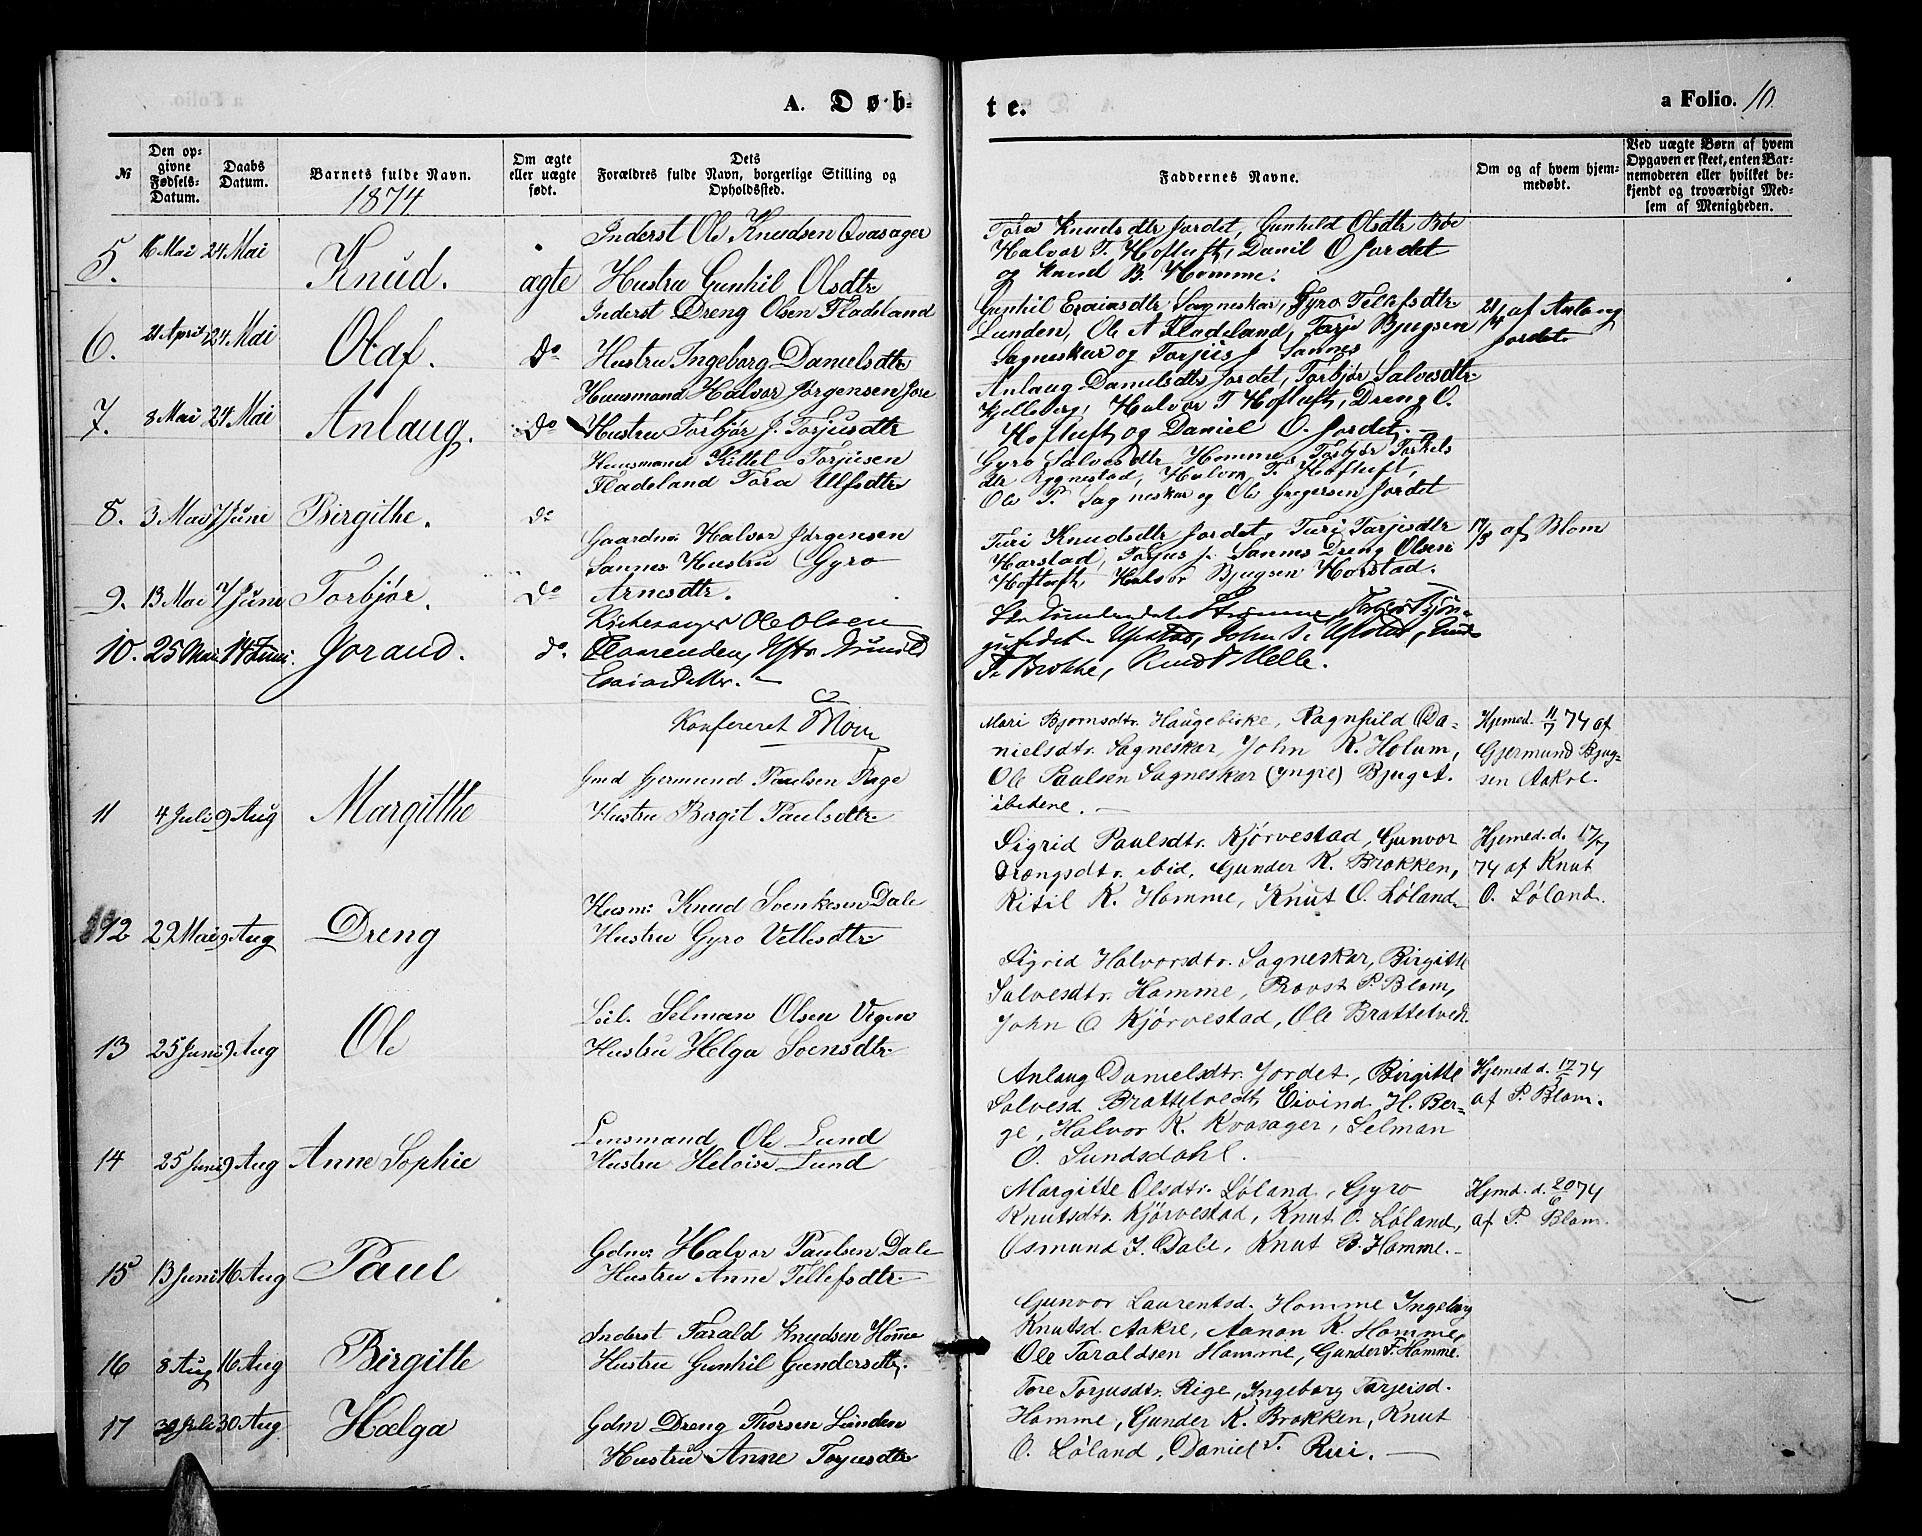 A. Døb-
te.
a Folio. 10.
№
Den op-
givne
Fødsels-
Datum.
Daabs
Datum.
Barnets fulde Navn.
1874
Om ægte
eller uægte
født.
Dets
Forældres fulde Navn, borgerlige Stilling og
Opholdssted.
Faddernes Navne.
Om og af hvem hjem-
medøbt.
Ved uægte Børn af hvem
Opgaven er skeet, enten Bar-
nemoderen eller hvilket be-
kjendt og troværdigt Med-
lem af Menigheden.
5. 16 Mai 24 Mai Knud. ægte
Inderst Ole Knudsen Qvasager
Hustru Gunhil Olsdtr
Tora Knudsdtr Jordet, Gunhild Olsdtr Bøe
Halvor T. Hofluft, Daniel O Jordet
og Knud B. Homme.
6. 21 April 24 Mai Olaf. do
Inderst Dreng Olsen Fladeland
Hustru Ingeborg Danielsdtr
Gunhil Esaiasdtr Sagneskar, Gyro Tellefsdtr
Lunden, Ole A Fladeland, Tarje Bjugsen
Sagneskar og Torjus J Sannes
21/4 af Anlaug
Jordet
7. 8 Mai 24 Mai Anlaug. do
Huusmand Halvor Jørgensen Jore
Hustru Torbjør J. Torjusdtr
Anlaug Danielsdtr Jordet, Torbjør Salvesdtr
Kjelleberg, Halvor T Hofluft, Dreng O.
Hofluft og Daniel O. Jordet.
8. 3 Mai 7 Juni Birgithe. do
Huusmand Kittel Torjusen
Fladeland Tora Ulfsdtr
Gyro Salvesdtr Homme, Torbjør Torkels
dtr Rygnestad, Halvor T. Hofluft,
Ole P. Sagneskar og Ole Gregersen Jordet
9. 13 Mai 7 Juni Torbjør. do
Gaardm: Halvor Jørgensen
Sannes Hustru Gyro
Arnesdtr.
Turi Knudsdtr Jordet, Turi Tarjeisdtr
Harstad, Torjus J. Sannes Dreng Olsen
Hofluft, Halvor Bjugsen Harstad.
17/5 af Blom
10. 25 Mai 14 Juni Jorand. do.
Kirkesanger Ole Olsen
Hstr Gunild
Esaiasdatter.
Upstad, John
Brokke, Knud Helle.
Konfereret
11 4 Juli 9 Aug Margitthe
Gmd Gjermund Paulsen Rige
Hustru Birgit Paulsdtr.
Mari Bjørnsdtr. Haugebirke, Ragnhild Da-
nielsdtr. Sagneskar, John K. Holum,
Ole Paulsen Sagneskar (yngre) Bjug A.
ibidene.
Hjemed. 11/7 74 af
Gjermund Bjug-
sen Aakre.
12 29 Mai 9 Aug Dreng
Husm: Knud Svenkesen Dale
Hustru Gyro Vellesdtr
Sigrid Paulsdtr. Kjørvestad, Gunvor
Drengsdtr. ibid, Gunder K. Brokken,
Kitil K. Homme, Knut O. Løland
Hjemed. d. 17/7
74 af Knut
O. Løland.
13 25 Juni 9 Aug Ole
Leil. Selman Olsen Vegen
Hustru Helga Svensdtr
Sigrid Halvorsdtr. Sagneskar, Birgitte
Salvesdtr. Homme, Provst P. Blom,
John O Kjørvestad, Ole Brattetvedt
14 25 Juni 9 Aug Anne Sophie
Lensmand Ole Lund
Hustru Heloise Lund
Anlaug Danielsdtr. Jordet, Birgitte
Salvesd. Brottetvedt, Eivind H. Ber-
ge, Halvor K. Kvasager, Selman
O. Sundsdahl.
Hjemed d. 74
af P. Blom.
15 13 Juni 16 Aug Paul
Gdm: Halvor Paulsen Dale
Hustru Anne Tellefsdtr
Margitte Olsdtr. Løland, Gyro
Knutsdtr. Kjørvestad, Knut O. Løland,
Osmund I. Dale, Knut B. Homme.
Hjmd. d. 20/6 74
af P. Blom.
16 8 Aug 16 Aug Birgitte
Inderst Tarald Knudsen Homme
Hustru Gunhil Gundersdtr.
Gunvor Laurentsd. Homme Ingeborg
Knutsd. Aakre, Aanon K. Homme,
Ole Taraldsen Homme, Gunder T. Homme.
17 30 Juli 30 Aug Hælga
Gdm Dreng Thorsen Lunden
Hustru Anne Torjusdtr
Tore Torjusdtr. Rige, Ingeborg Tarjeisd.
Homme, Gunder K. Brokken, Knut
O. Løland, Daniel T. Rui.